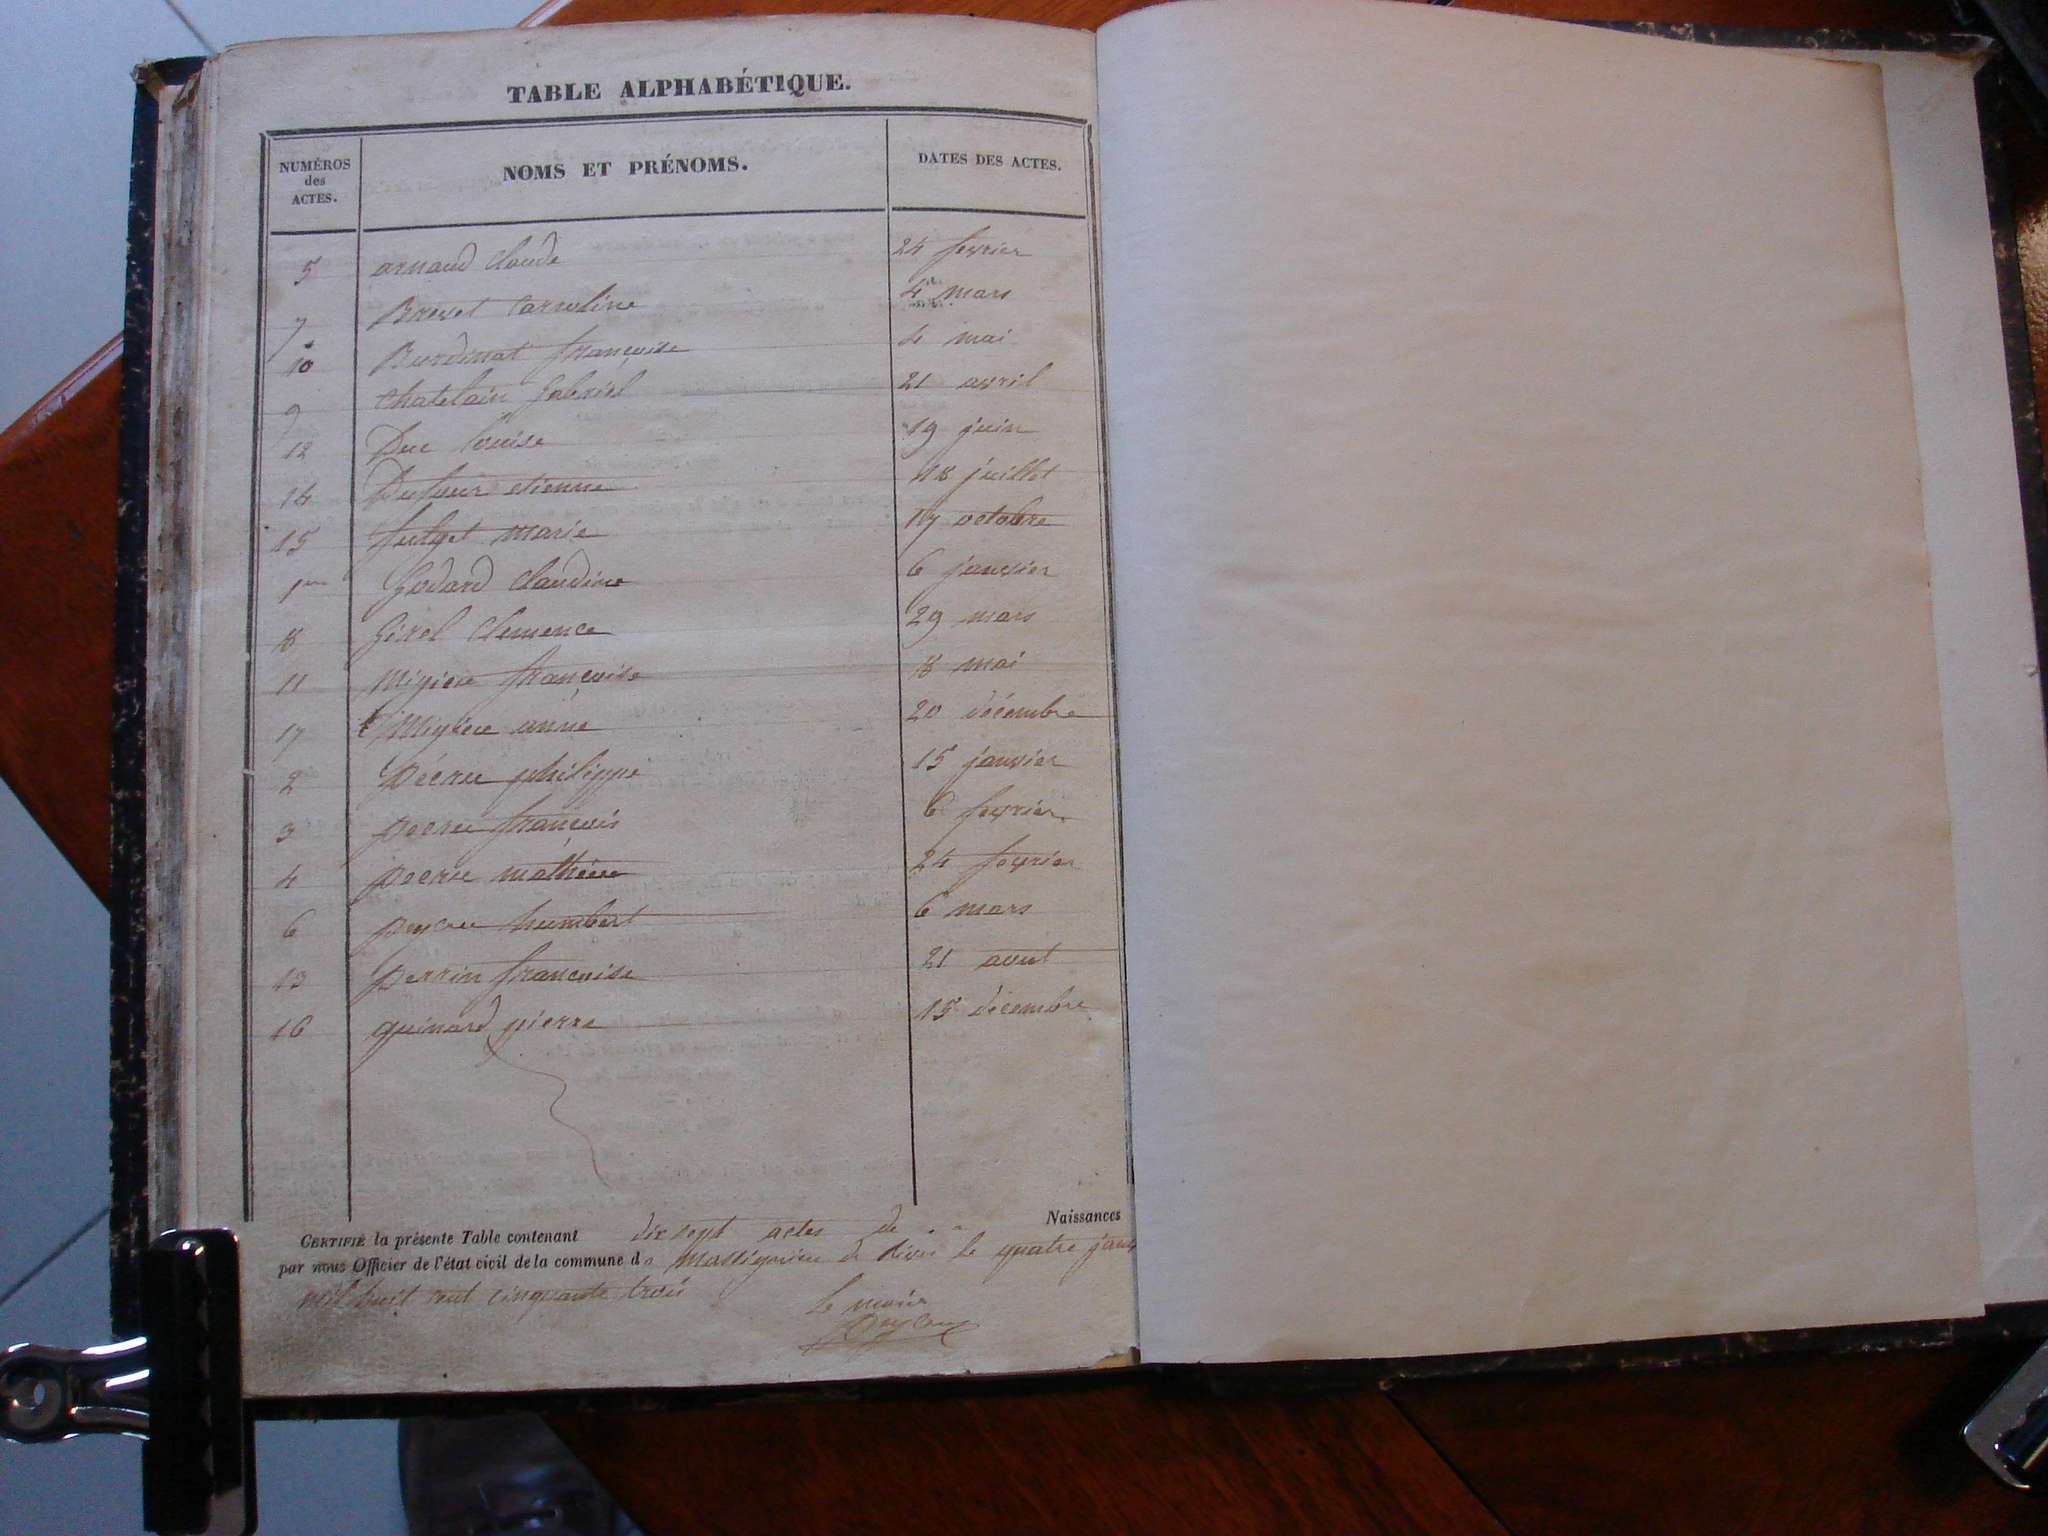 TABLE ALPHABÉTIQUE.
NUMÉROS des ACTES. NOMS ET PRÉNOMS. DATES DES ACTES.
5 arnaud Claude 24 fevrier
7 Brevet Carroline 4 mars
10 Burdinat françoise 4 mai
9 Chatelain Gabriel 21 avril
12 Duc Louise 19 juin
14 Dufour etienne 18 juillet
15 marie 17 octobre
1er Godard Claudine 6 janvier
8 Clemence 29 mars
11 françoise 18 mai
17 anne 20 décembre
2 Pécru philippe 15 janvier
3 pecru françois 6 fevrier
4 pecru mathieu 24 fevrier
6 humbert 6 mars
13 perrin francoise 21 aout
16 quinard pierre 15 décembre
CERTIFIÉ la présente Table contenant dix sept actes de Naissances
par nous Officier de l'état civil de la commune d massignieu de rives le quatre janv
mil huit cent cinquante trois
Le maire